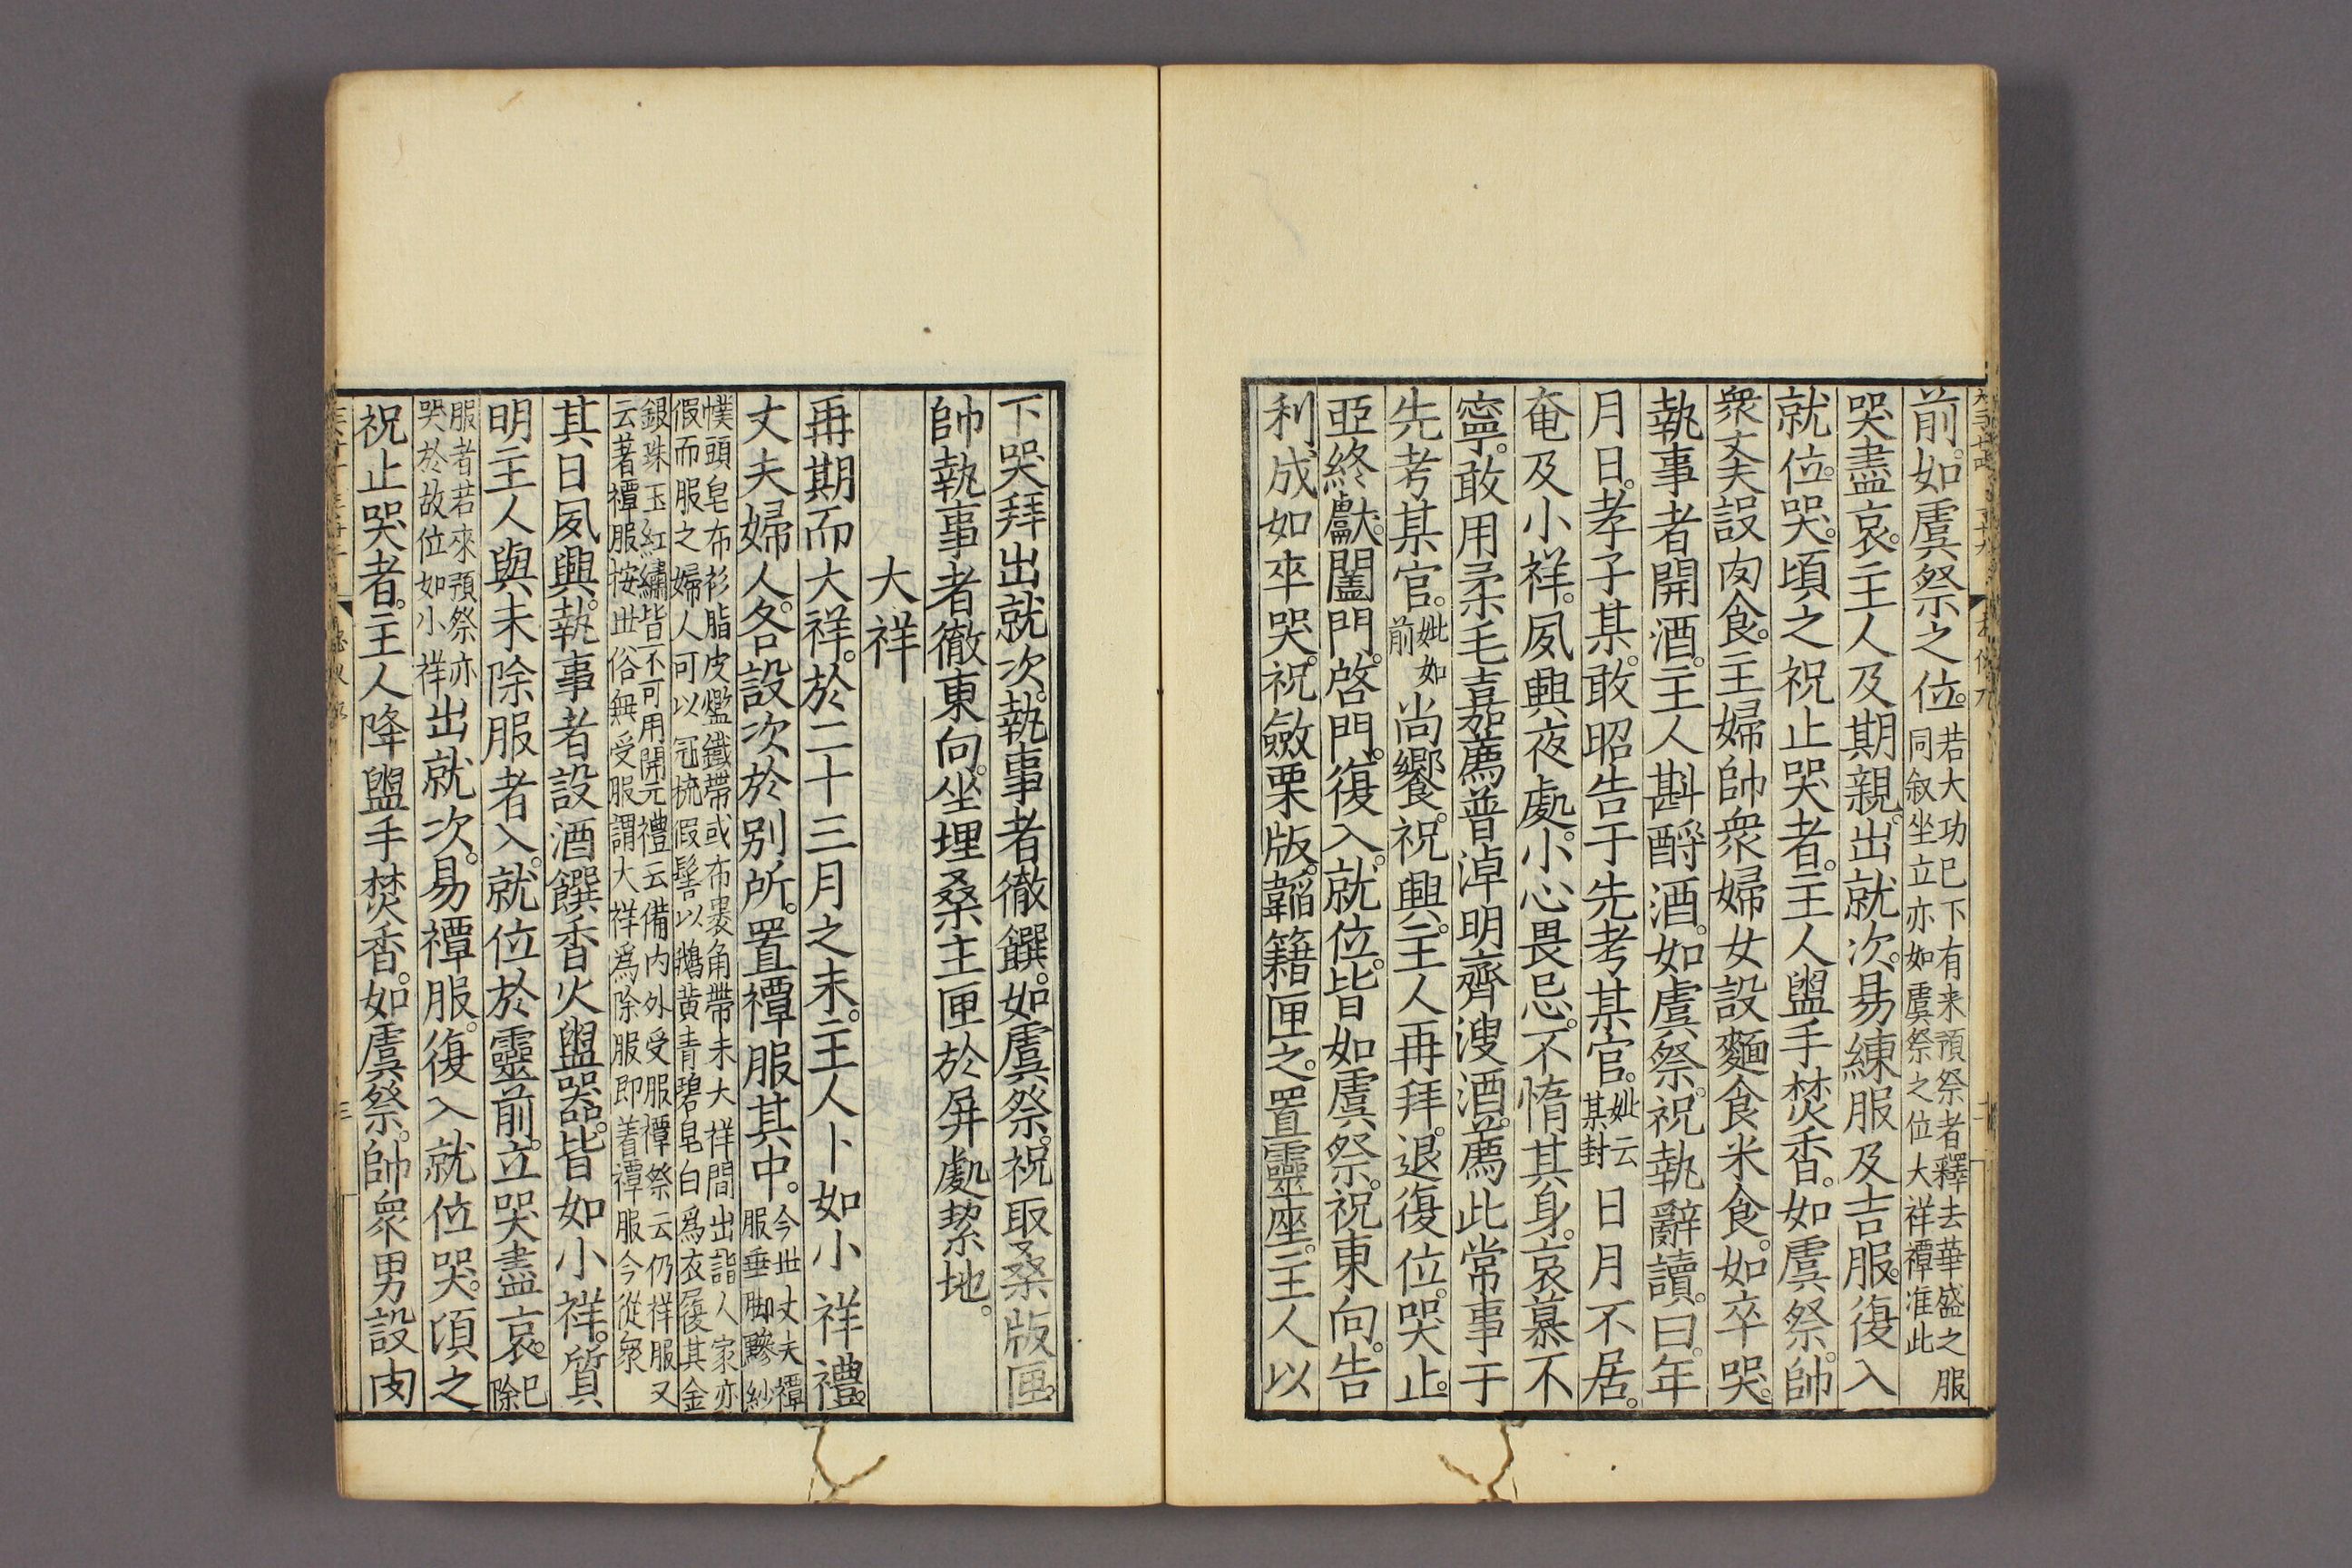 前。如虞祭之位。若大功已下有来預祭者釋去華盛之服同叙坐立亦如虞祭之位大祥禫准此
哭盡哀。主人及期親。出就次。易練服及吉服。復入
就位。哭。頃之祝止哭者。主人盥手焚香。如虞祭。帥
衆丈夫設肉食。主婦帥衆婦女設麵食米食。如卒哭。
執事者開酒。主人斟酹酒。如虞祭。祝執辭讀。曰。年
月日。孝子某。敢昭告于先考某官。妣云某封日月不居。
奄及小祥。夙興夜處。小心畏忌。不惰其身。哀慕不
寧。敢用柔毛嘉薦普淖明齊溲酒。薦此常事于
先考某官。妣如前尚饗。祝興。主人再拜。退復位。哭止。
亞終獻。闔門。啓門。復入。就位。皆如虞祭。祝東向。告
利成如卒哭。祝斂栗版。韜籍匣之。置靈座。主人以
下哭拜出就次。執事者徹饌。如虞祭。祝取桑版匣。
帥執事者徹東向。坐埋桑主匣於屏處絜地。
大祥
再期而大祥。於二十三月之末。主人卜如小祥禮。
丈夫婦人。各設次於别所。置禫服其中。今世丈夫禫服垂脚黲紗
幞頭皂布衫脂皮爁鐵帶或布裹角帶未大祥間出詣人家亦
假而服之婦人可以冠梳假髻以鵝黃青碧皂白爲衣履其金
銀珠玉紅繡皆不可用開元禮云備内外受服禫祭云仍祥服又
云著禫服按世俗無受服謂大祥爲除服即着禫服今從衆
其日夙興。執事者設酒饌香火盥器。皆如小祥。質
明主人與未除服者入。就位於靈前。立哭盡哀。已除
服者若來預祭亦哭於故位如小祥出就次。易禫服。復入就位哭。頃之
祝止哭者。主人降盥手焚香。如虞祭。帥衆男設肉